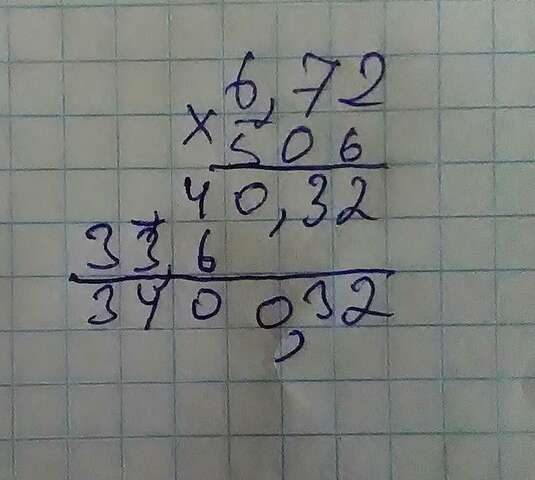 6,72
× 506
40,32
33,6
3400,32